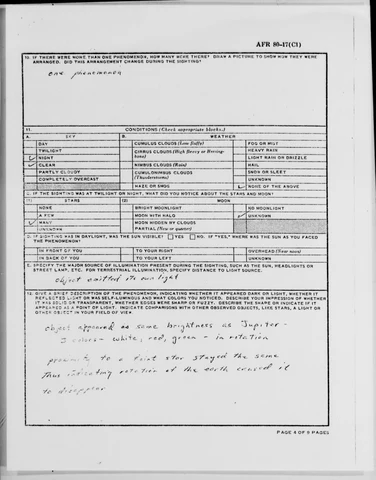 AFR 80-17(C1)
10. IF THERE WERE MORE THAN ONE PHENOMENON, HOW MANY WERE THERE? DRAW A PICTURE TO SHOW HOW THEY WERE
ARRANGED. DID THIS ARRANGEMENT CHANGE DURING THE SIGHTING?
one phenomenon
11. CONDITIONS (Check appropriate blocks.)
A. SKY B. WEATHER
DAY CUMULUS CLOUDS (Low fluffy) FOG OR MIST
TWILIGHT CIRRUS CLOUDS (High fleecy or Herring- HEAVY RAIN
NIGHT bone) LIGHT RAIN OR DRIZZLE
CLEAR NIMBUS CLOUDS (Rain) HAIL
PARTLY CLOUDY CUMULONIMBUS CLOUDS SNOW OR SLEET
COMPLETELY OVERCAST (Thunderstorms) UNKNOWN
HAZE OR SMOG NONE OF THE ABOVE
C. IF THE SIGHTING WAS AT TWILIGHT OR NIGHT, WHAT DID YOU NOTICE ABOUT THE STARS AND MOON?
(1) STARS (2) MOON
NONE BRIGHT MOONLIGHT NO MOONLIGHT
A FEW MOON WITH HALO UNKNOWN
MANY MOON HIDDEN BY CLOUDS
UNKNOWN PARTIAL (New or quarter)
D. IF SIGHTING WAS IN DAYLIGHT, WAS THE SUN VISIBLE? YES NO. IF "YES," WHERE WAS THE SUN AS YOU FACED
THE PHENOMENON?
IN FRONT OF YOU TO YOUR RIGHT OVERHEAD (Near noon)
IN BACK OF YOU TO YOUR LEFT UNKNOWN
E. SPECIFY THE MAJOR SOURCE OF ILLUMINATION PRESENT DURING THE SIGHTING, SUCH AS THE SUN, HEADLIGHTS OR
STREET LAMP, ETC. FOR TERRESTRIAL ILLUMINATION, SPECIFY DISTANCE TO LIGHT SOURCE.
object emitted its own light
12. GIVE A BRIEF DESCRIPTION OF THE PHENOMENON, INDICATING WHETHER IT APPEARED DARK OR LIGHT, WHETHER IT
REFLECTED LIGHT OR WAS SELF-LUMINOUS AND WHAT COLORS YOU NOTICED. DESCRIBE YOUR IMPRESSION OF WHETHER
IT WAS SOLID OR TRANSPARENT, WHETHER EDGES WERE SHARP OR FUZZY. DESCRIBE THE SHAPE OR INDICATE IF IT
APPEARED AS A POINT OF LIGHT. INDICATE COMPARISONS WITH OTHER OBSERVED OBJECTS, LIKE STARS, A LIGHT OR
OTHER OBJECT IN YOUR FIELD OF VIEW.
object appeared as same brightness as Jupiter -
colors - white, red, green - in rotation
to a faint star stayed the same
Thus indicating rotation of the earth caused it
to disappear
PAGE 4 OF 5 PAGES